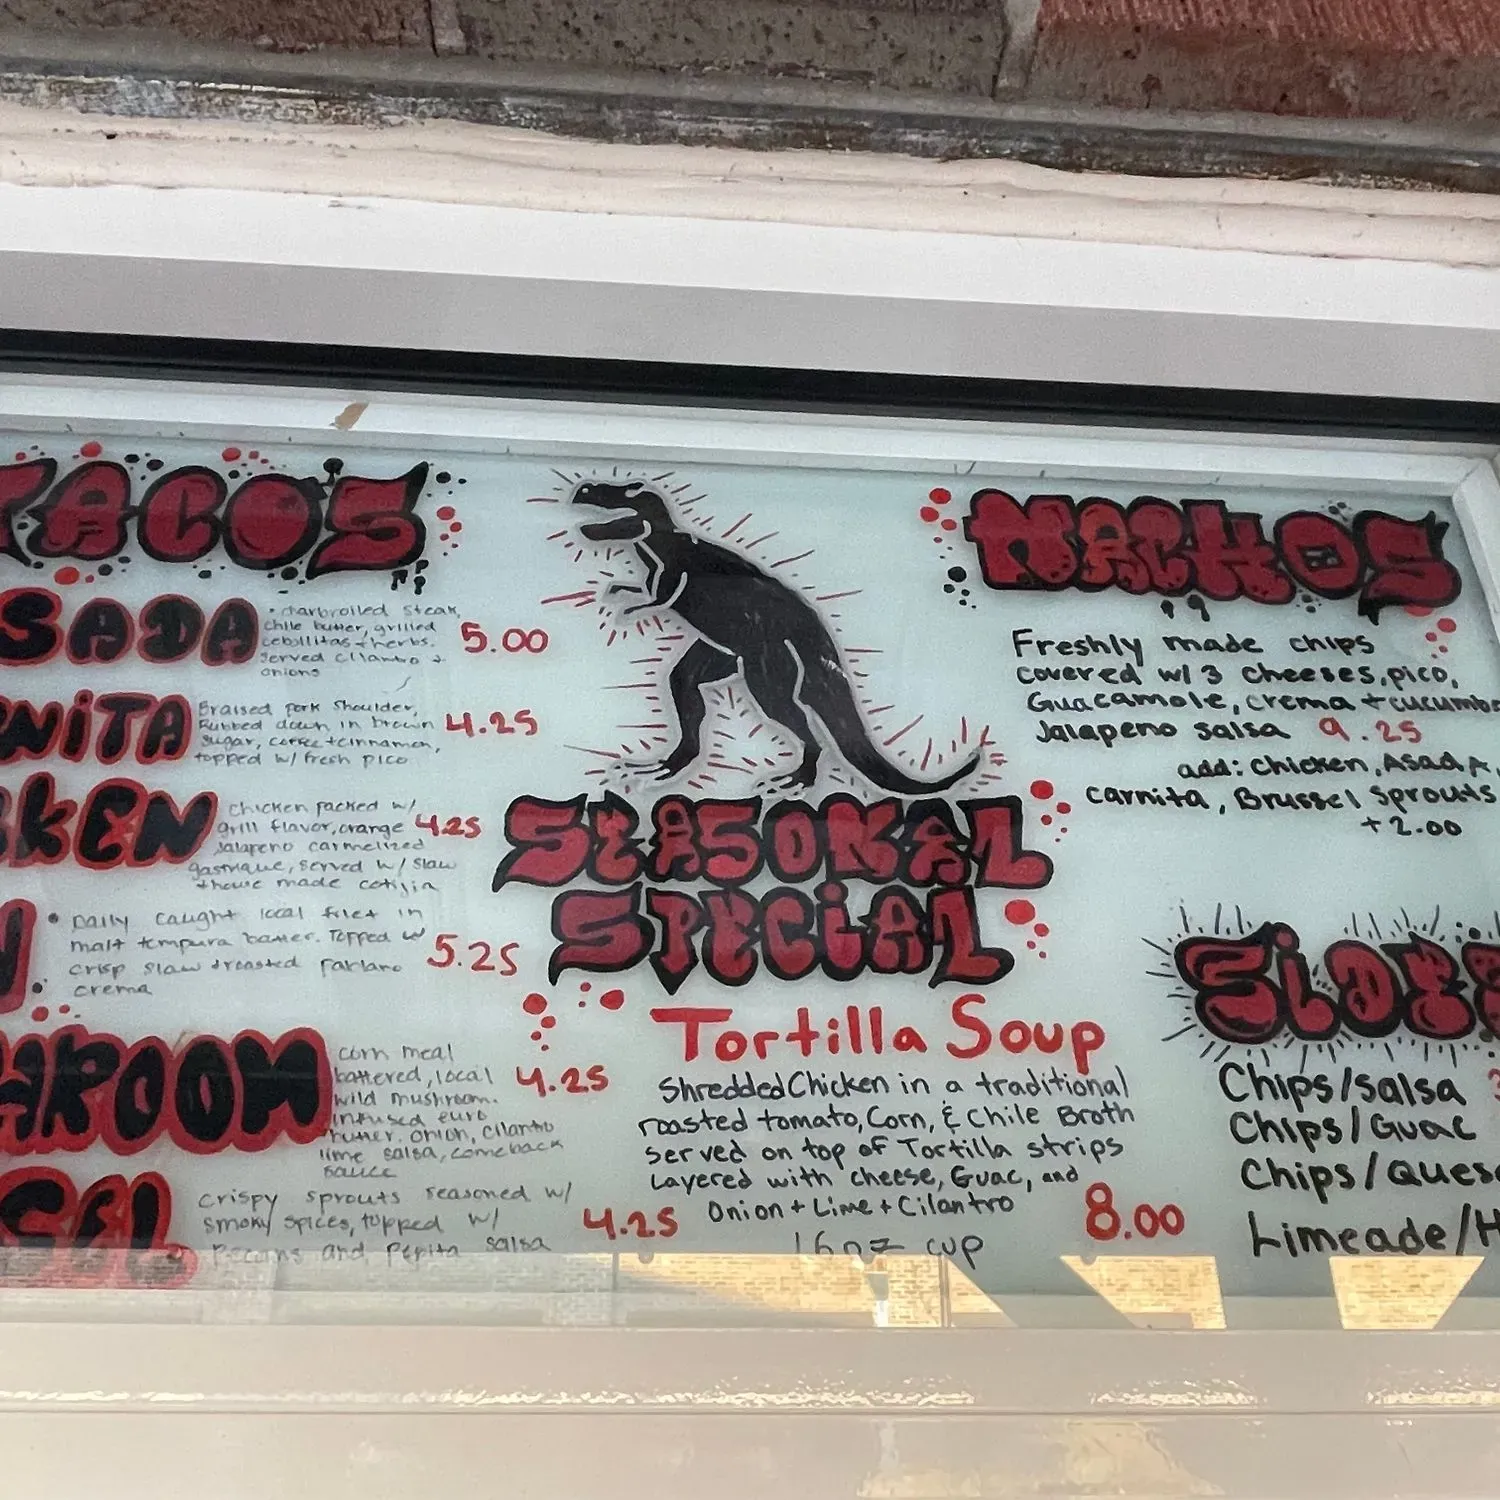 TACOS
SADA
• charbroiled steak,
chile butter, grilled
cebollitas + herbs.
served cilantro +
onions
5.00
NiTA
Braised pork shoulder,
Rubbed down in brown
sugar, coffee + cinnamon,
topped w/ fresh pico
4.25
KEN
chicken packed w/
grill flavor, orange
Jalapeno carmelized
gastrique, served w/ slaw
+ house made cotijin
4.25
• Daily caught local filet in
malt tempura batter. Topped w/
crisp slaw + roasted
crema
5.25
HROOM
corn meal
battered, local
wild mushroom.
infused euro
butter. onion, cilantro
lime salsa, comeback
sauce
4.25
SEL
crispy sprouts seasoned w/
smoky spices, topped w/
pecans and pepita salsa
4.25
SEASONAL
SPECiAL
Tortilla Soup
Shredded Chicken in a traditional
roasted tomato, Corn, & Chile Broth
served on top of Tortilla strips
Layered with cheese, Guac, and
Onion + Lime + Cilantro
16 oz cup
8.00
NACHOS
Freshly made chips
covered w/ 3 cheeses, pico,
Guacamole, crema + cucumbe
Jalapeno salsa 9.25
add: Chicken, Asada,
carnita, Brussel sprouts
+ 2.00
SiDES
Chips/salsa 3
Chips/Guac
Chips/Ques
Limeade/H